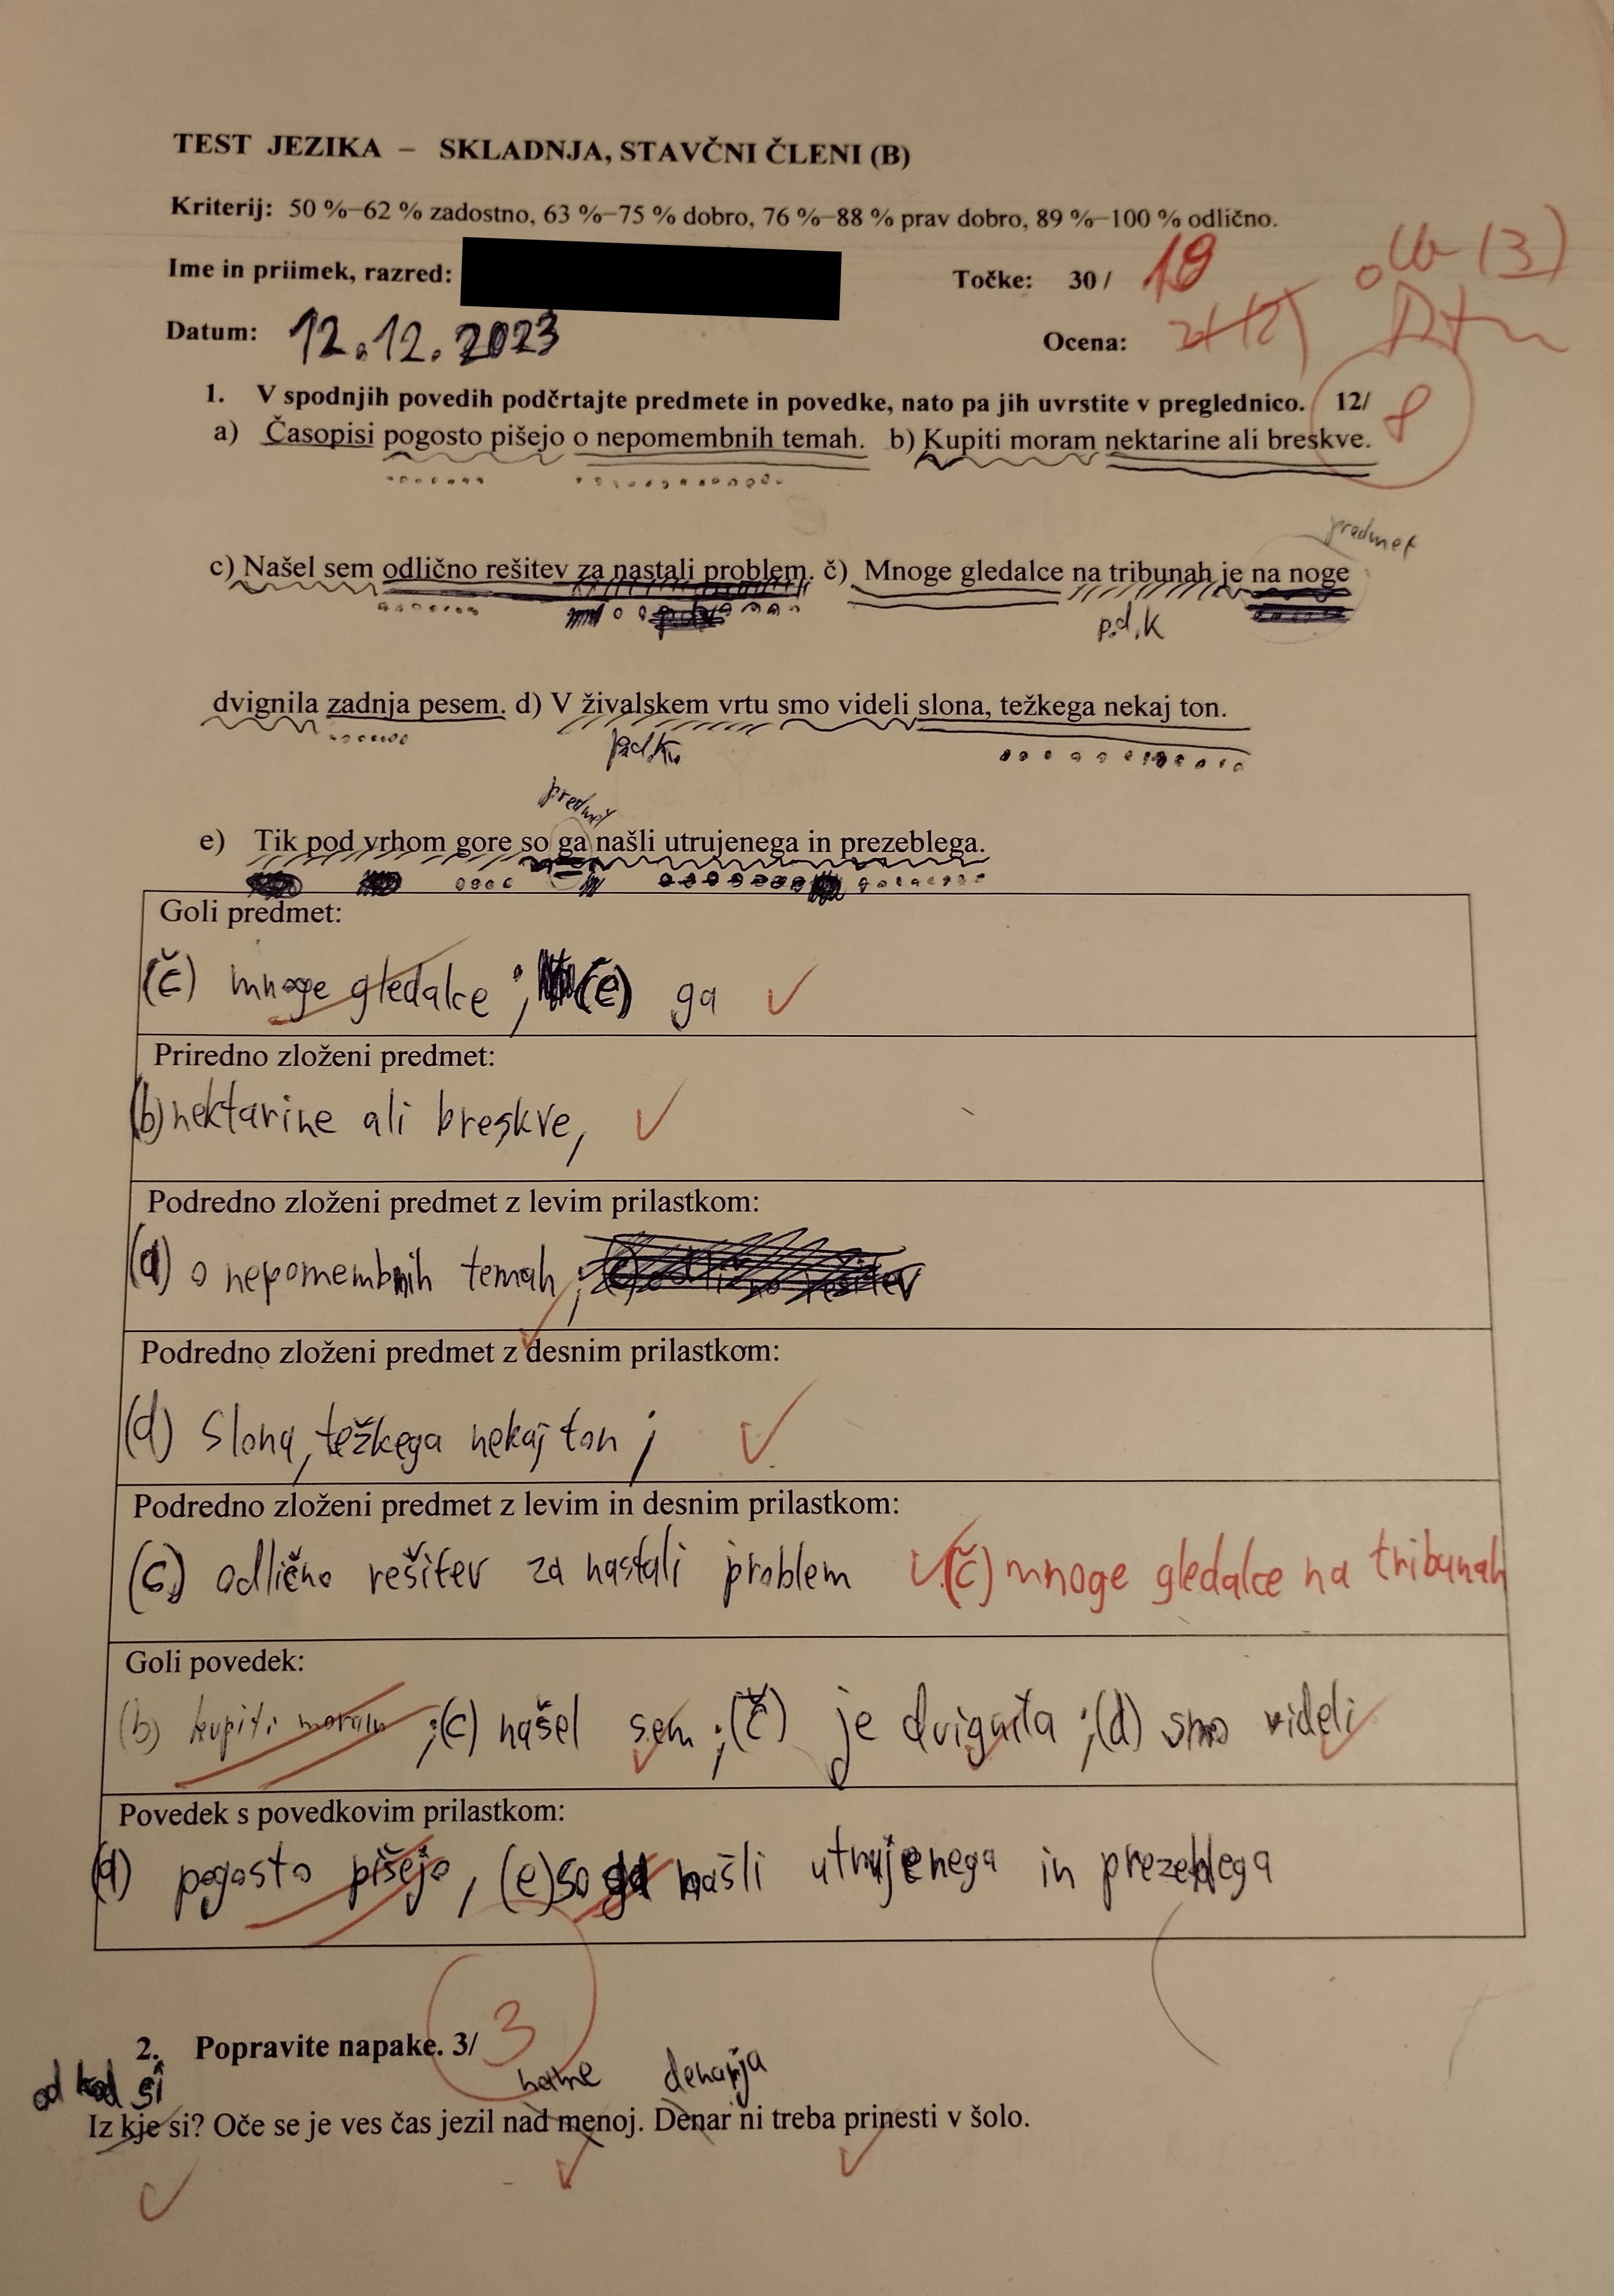 TEST JEZIKA – SKLADNJA, STAVČNI ČLENI (B)
Kriterij: 50 %–62 % zadostno, 63 %–75 % dobro, 76 %–88 % prav dobro, 89 %–100 % odlično.
Ime in priimek, razred:
Točke: 30 / 19
db (3)
Datum: 12.12.2023
Ocena: zd (2)
1. V spodnjih povedih podčrtajte predmete in povedke, nato pa jih uvrstite v preglednico. 12/ 8
a) Časopisi pogosto pišejo o nepomembnih temah. b) Kupiti moram nektarine ali breskve.
predmet
c) Našel sem odlično rešitev za nastali problem. č) Mnoge gledalce na tribunah je na noge
p.d.k
dvignila zadnja pesem. d) V živalskem vrtu smo videli slona, težkega nekaj ton.
p.d.k.
predmet
e) Tik pod vrhom gore so ga našli utrujenega in prezeblega.
Goli predmet:
(č) mnoge gledalce ; (e) ga
Priredno zloženi predmet:
(b) nektarine ali breskve,
Podredno zloženi predmet z levim prilastkom:
(a) o nepomembnih temah ;
Podredno zloženi predmet z desnim prilastkom:
(d) slona, težkega nekaj ton ;
Podredno zloženi predmet z levim in desnim prilastkom:
(c) odlično rešitev za nastali problem (č) mnoge gledalce na tribunah
Goli povedek:
(b) kupiti moram ; (c) našel sem ; (č) je dvignila ; (d) smo videli
Povedek s povedkovim prilastkom:
(a) pogosto pišejo, (e) so našli utrujenega in prezeblega
2. Popravite napake. 3/ 3
od kod si
name denarja
Iz kje si? Oče se je ves čas jezil nad menoj. Denar ni treba prinesti v šolo.